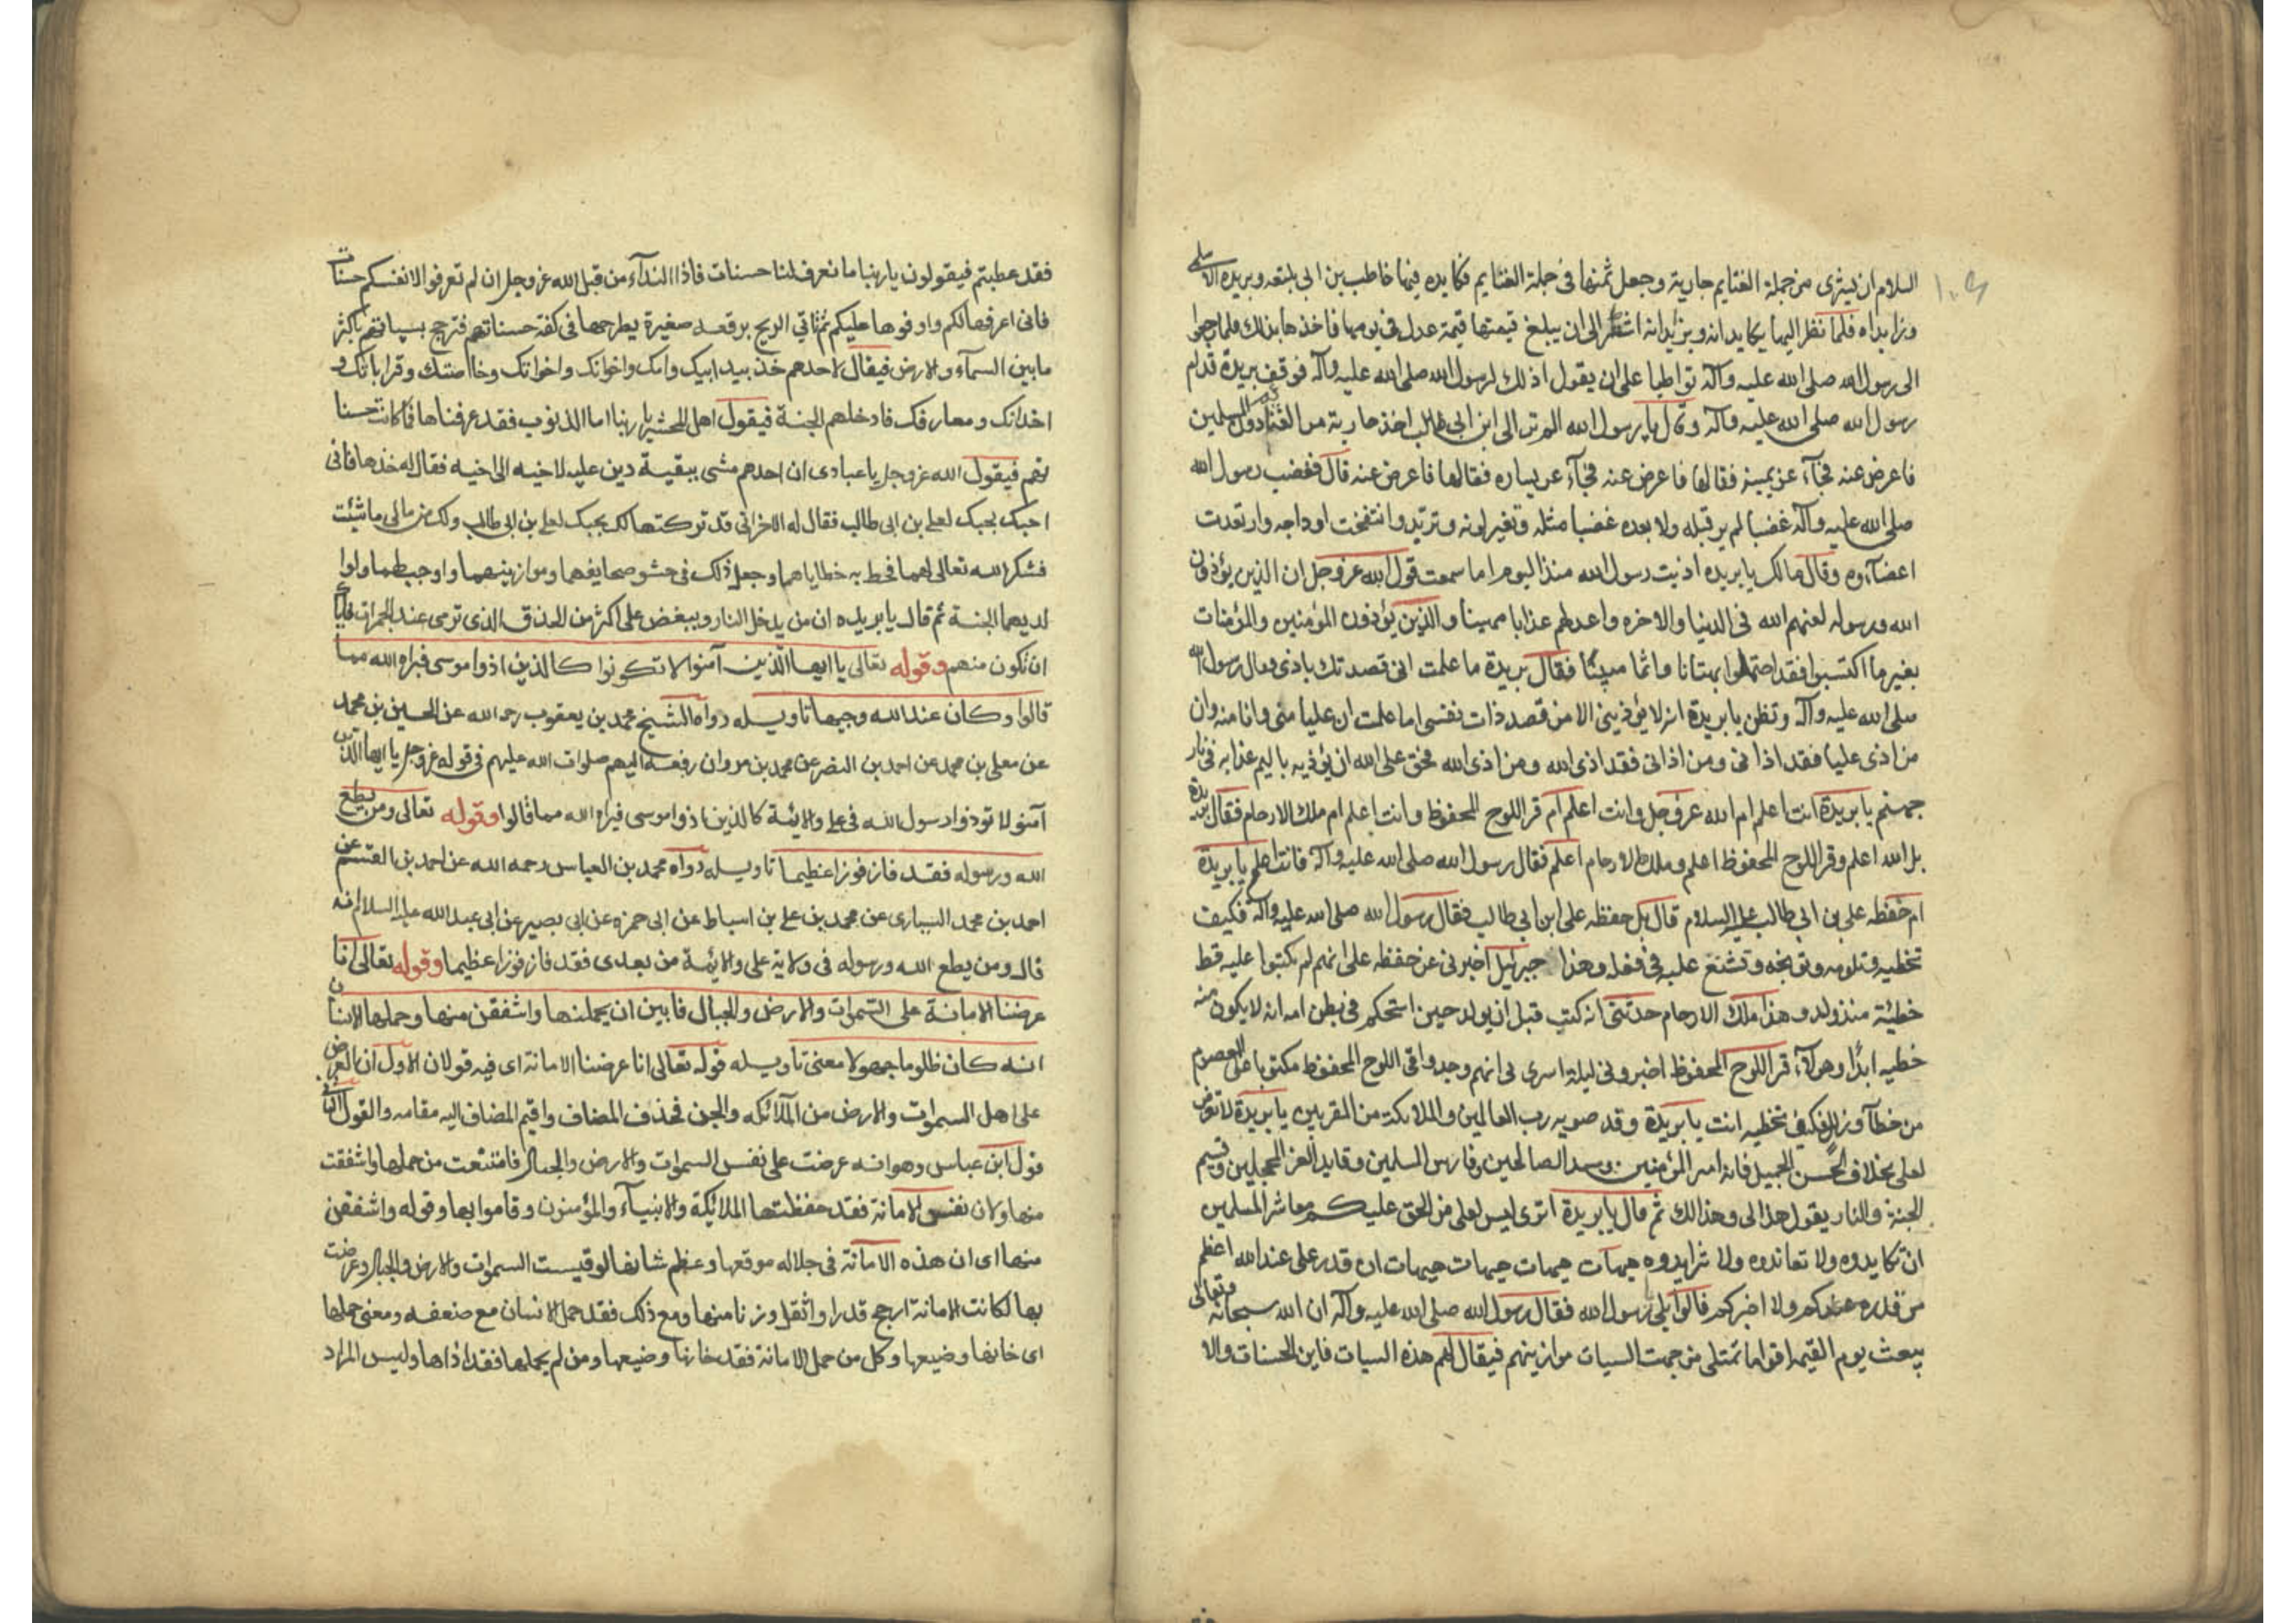 السلام ان يشترى من جملة الغنايم جارية وجعل ثمنها فى جملة الغنايم فكايده فيها خاطب بن ابى بلتعه وبريده الاسلمى
وزايداه فلما نظر اليهما يكايدانه ويزيدانه انتظر الى ان يبلغ قيمتها قيمة عدل فى يومها فاخذها بذلك فلما رجعوا
الى رسول الله صلى الله عليه وآله تواطيا على ان يقول اذلك لرسول الله صلى الله عليه وآله فوقف بريدة قدام
رسول الله صلى الله عليه وآله وقال يا رسول الله الم تر الى ابن ابى طالب اخذ جارية من المغنم دون المسلمين
فاعرض عنه فجآء عن يمينه فقالها فاعرض عنه فجآء عن يساره فقالها فاعرض عنه قال فغضب رسول الله
صلى الله عليه وآله غضبا لم ير قبله ولا بعده غضبا مثله وتغير لونه وتربد وانتفخت اوداجه وارتعدت
اعضآؤه وقال مالك يا بريده اذيت رسول الله منذ اليوم اما سمعت قول الله عز وجل ان الذين يؤذون
الله ورسوله لعنهم الله فى الدنيا والاخره واعد لهم عذابا مهينا والذين يؤذون المؤمنين والمؤمنات
بغير ما اكتسبوا فقد احتملوا بهتانا واثما مبينا فقال بريدة ما علمت انى قصدتك باذى فقال رسول الله
صلى الله عليه وآله وتظن يا بريدة انه لا يؤذينى الا من قصد ذات نفسى اما علمت ان عليا منى وانا منه وان
من اذى عليا فقد اذانى ومن اذانى فقد اذى الله ومن اذى الله فحق على الله ان يؤذيه باليم عذابه فى نار
جهنم يا بريدة انت اعلم ام الله عز وجل وانت اعلم ام قر اللوح المحفوظ وانت اعلم ام ملك الارحام فقال بريدة
بل الله اعلم وقر اللوح المحفوظ اعلم وملك الارحام اعلم فقال رسول الله صلى الله عليه وآله فانت اعلم يا بريدة
ام حفظه على بن ابى طالب عليه السلام قال بل حفظه على ابن ابى طالب فقال رسول الله صلى الله عليه وآله فكيف
تخطيه وتلومه وتوبخه وتشنع عليه فى فعله وهذا جبرئيل اخبرنى عن حفظه على انهم لم يكتبوا عليه قط
خطيئة منذ ولد وهذا ملك الارحام حدثنى انه كتب قبل ان يولد حين استحكم فى بطن امه انه لا يكون منه
خطيه ابدا وهؤلآء قر اللوح المحفوظ اخبرونى ليلة اسرى بى انهم وجدوا فى اللوح المحفوظ مكتوبا على المعصوم
من خطآ وزلل فكيف تخطيه انت يا بريدة وقد صوبه رب العالمين والملائكة من المقربين يا بريدة لا تعرض
لعلى بخلاف الحسن الجميل فانه امير المؤمنين وسيد الصالحين وفارس المسلمين وقايد الغر المحجلين وقسيم
الجنة والنار يقول هذا لى وهذا لك ثم قال يا بريدة اترى ليس لعلى من الحق عليكم معاشر المسلمين
ان تكايدوه ولا تعاندوه ولا تزايدوه هيهات هيهات هيهات هيهات ان قدر على عند الله اعظم
من قدره عندكم ولا اخبركم قالوا بلى رسول الله فقال رسول الله صلى الله عليه وآله ان الله سبحانه وتعالى
يبعث يوم القيمه اقواما تمتلى من جهت السيات موازينهم فيقال لهم هذه السيات فاين الحسنات والا
فقد عطبتم فيقولون يا ربنا ما نعرف لنا حسنات فاذا النداء من قبل الله عز وجل ان لم تعرفوا لانفسكم حسنات
فانى اعرفها لكم واوفوها عليكم ثم تاتى الريح برقعه صغيرة يطرحها فى كفة حسناتهم فترجح بسياتهم باكثر
ما بين السمآء والارض فيقال لاحدهم خذ بيد ابيك وامك واخوانك واخواتك وخاصتك وقراباتك و
اخدانك ومعارفك فادخلهم الجنة فيقول اهل المحشر يا ربنا اما الذنوب فقد عرفناها فما كانت حسنا
تهم فيقول الله عز وجل يا عبادى ان احدهم مشى ببقية دين عليه لاخيه الى اخيه فقال له خذها فانى
احبك بحبك لعلى بن ابى طالب فقال له الاخر انى قد تركتها لك بحبك لعلى بن ابى طالب ولك من مالى ما شئت
فشكر الله تعالى لهما فحط به خطاياهما وجعل ذلك فى حشو صحايفهما وموازينهما واوجب لهما ولوا
لديهما الجنة ثم قال يا بريده ان من يدخل النار ويبغض على اكثر من الحذف الذى ترمى عند الجمرات فاياك
ان تكون منهم وقوله تعالى يا ايها الذين آمنوا لا تكونوا كالذين اذوا موسى فبراه الله مما
قالوا وكان عند الله وجيها تاويله رواه الشيخ محمد بن يعقوب رحمه الله عن الحسين بن محمد
عن معلى بن محمد عن احمد بن النضر عن محمد بن مروان رفعه اليهم صلوات الله عليهم فى قوله عز وجل يا ايها الذين
آمنوا لا تؤذوا رسول الله فى على والائمة كالذين اذوا موسى فبراه الله مما قالوا وقوله تعالى ومن يطع
الله ورسوله فقد فاز فوزا عظيما تاويله رواه محمد بن العباس رحمه الله عن احمد بن القسم عن
احمد بن محمد السيارى عن محمد بن على بن اسباط عن ابى حمزه عن ابى بصير عن ابى عبد الله عليه السلام انه
قال ومن يطع الله ورسوله فى ولاية على والائمة من بعدى فقد فاز فوزا عظيما وقوله تعالى انا
عرضنا الامانة على السموات والارض والجبال فابين ان يحملنها واشفقن منها وحملها الانسان
انه كان ظلوما جهولا معنى تاويله قوله تعالى انا عرضنا الامانة اى فيه قولان الاول ان العرض
على اهل السموات والارض من الملآئكه والجن فحذف المضاف واقيم المضاف اليه مقامه والقول الثانى
قول ابن عباس وهو انه عرضت على نفس السموات والارض والجبال فامتنعت من حملها واشفقت
منها ولان نفس الامانة فقد حفظتها الملائيكة والانبيآء والمؤمنون وقاموا بها وقوله واشفقن
منها اى ان هذه الامانة فى جلاله موقعها وعظم شانها لو قيست السموات والارض والجبال وعرضت
بها لكانت الامانة ارجح قدرا واثقل وزنا منها ومع ذلك فقد حمل الانسان مع ضعفه ومعنى حملها
اى خانها وضيعها وكل من حمل الامانة فقد خانها وضيعها ومن لم يحملها فقد اداها وليس المراد